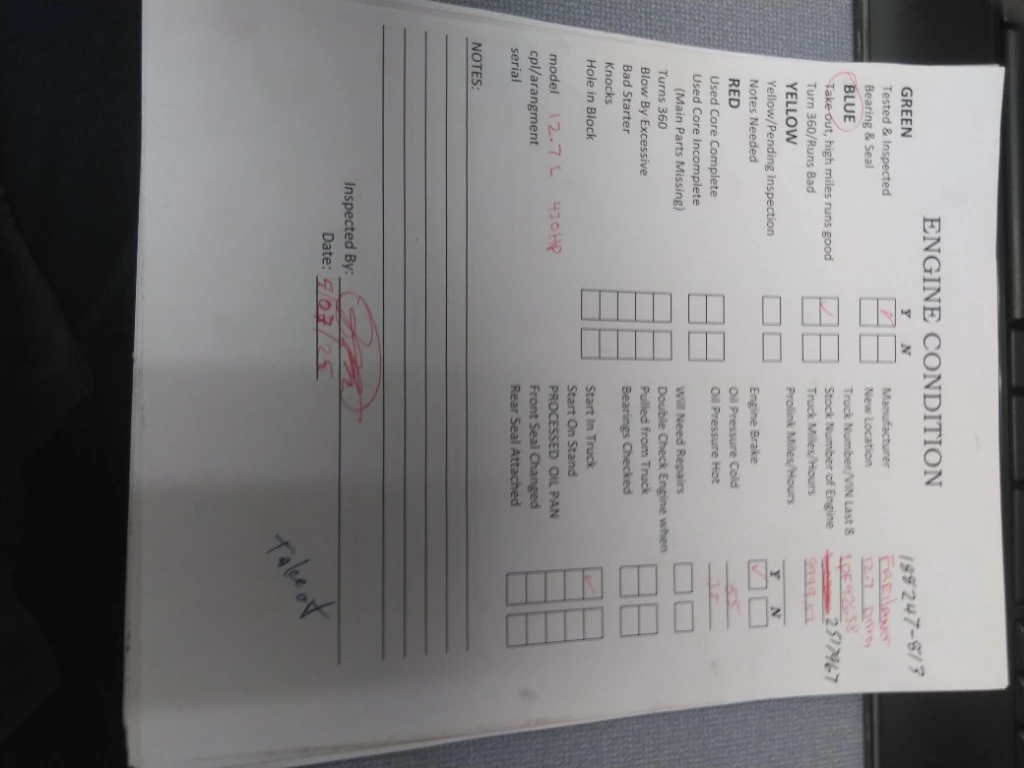 ENGINE CONDITION
188247-813
GREEN Y N
Tested & Inspected
Bearing & Seal
BLUE
Take out, high miles runs good
Turn 360/Runs Bad
YELLOW
Yellow/Pending Inspection
Notes Needed
RED
Used Core Complete
Used Core Incomplete
(Main Parts Missing)
Turns 360
Blow By Excessive
Bad Starter
Knocks
Hole in Block
model 12.7 L 430HP
cpl/arangment
serial
Manufacturer
New Location
Truck Number/VIN Last 8
Stock Number of Engine 297967
Truck Miles/Hours
Prolink Miles/Hours
Y N
Engine Brake
Oil Pressure Cold
Oil Pressure Hot
Will Need Repairs
Double Check Engine when
Pulled From Truck
Bearings Checked
Start In Truck
Start On Stand
PROCESSED OIL PAN
Front Seal Changed
Rear Seal Attached
NOTES:
Inspected By:
Date: 9/07/25
Takeout